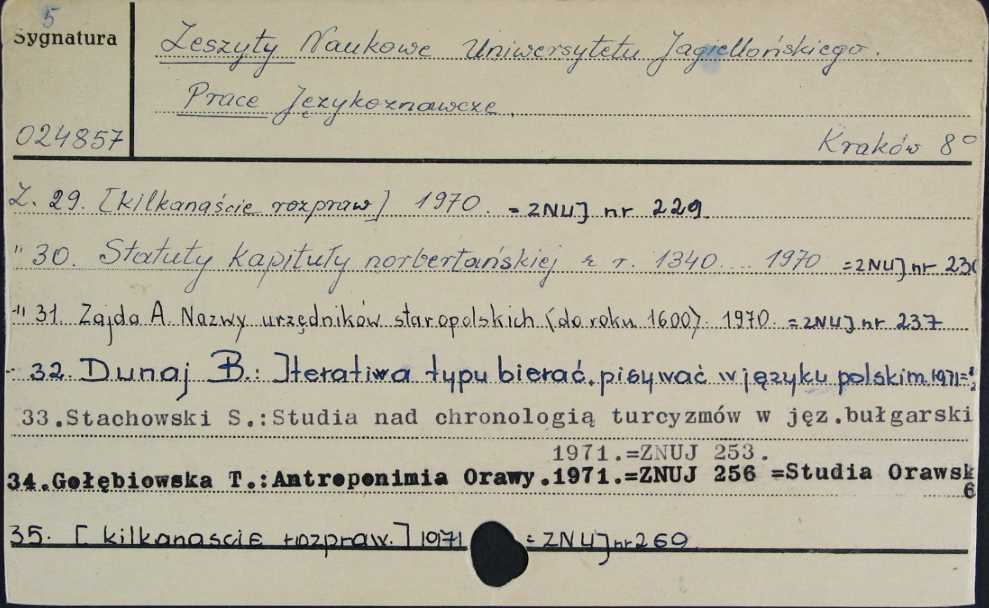 5
Sygnatura
Zeszyty Naukowe Uniwersytetu Jagiellońskiego.
Prace Językoznawcze.
024857
Kraków 8°
Z. 29. [kilkanaście rozpraw] 1970. = ZNUJ nr 229.
" 30. Statuty kapituły norbertańskiej z r. 1340 .... 1970 = ZNUJ nr 230
" 31. Zajda A. Nazwy urzędników staropolskich (do roku 1600). 1970. = ZNUJ nr 237
32. Dunaj B.: Iterativa typu bierać, pisywać w języku polskim. 1971 =
33.Stachowski S.:Studia nad chronologią turcyzmów w jęz.bułgarski
1971.=ZNUJ 253.
34.Gołębiowska T.:Antroponimia Orawy.1971.=ZNUJ 256 =Studia Orawsk
6
35. [kilkanascie rozpraw.] 1971 = ZNUJ nr 260.